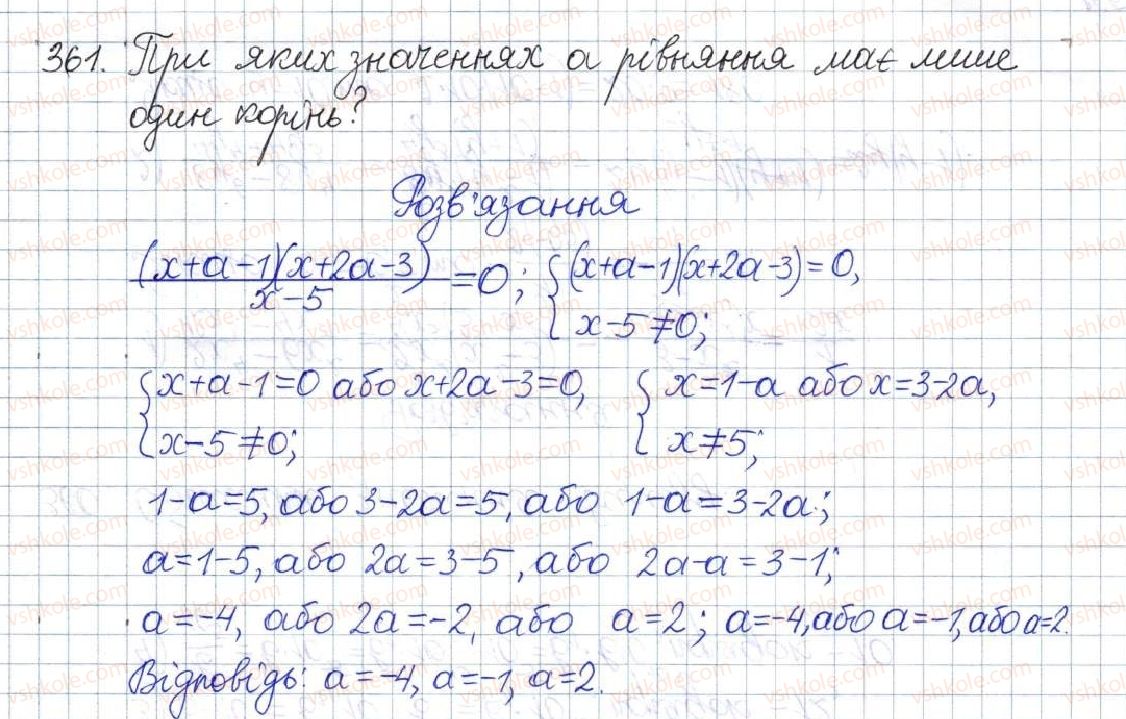 361. При яких значеннях a рівняння має лише
один корінь?
Розв'язання
(x+a-1)(x+2a-3) / x-5 = 0; { (x+a-1)(x+2a-3)=0,
x-5≠0;
{ x+a-1=0 або x+2a-3=0, { x=1-a або x=3-2a,
x-5≠0; x≠5;
1-a=5, або 3-2a=5, або 1-a=3-2a;
a=1-5, або 2a=3-5, або 2a-a=3-1;
a=-4, або 2a=-2, або a=2; a=-4, або a=-1, або a=2.
Відповідь: a=-4, a=-1, a=2.